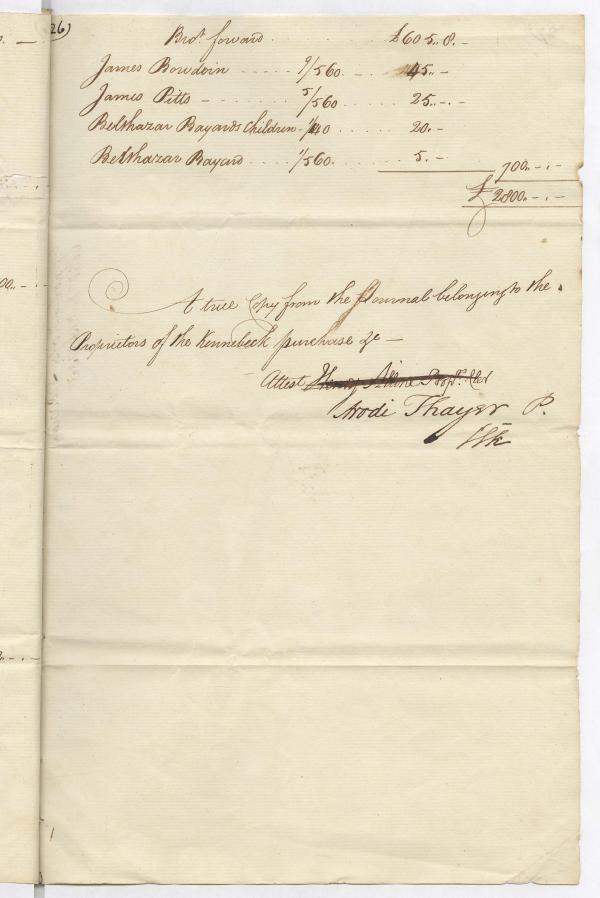 26)
Bro.t forward . . . . . . . . . . £605..8.–
James Bowdoin - - - - - 9/560. - . . . . 45..–
James Pitts – - - - - - . 5/560 . . . . . 25..–.–
Belthazar Bayards Children - 1/140 . . . . . 20.–
Belthazar Bayard . . . . 1/560. . . . . . 5.–
700..–.–
£2800..–.–
A true Copy from the Journal belonging to the
Proprietors of the Kennebeck purchase &c –
Attest Henry Alline Prop.rs Cler
Arodi Thayer P.
Clk